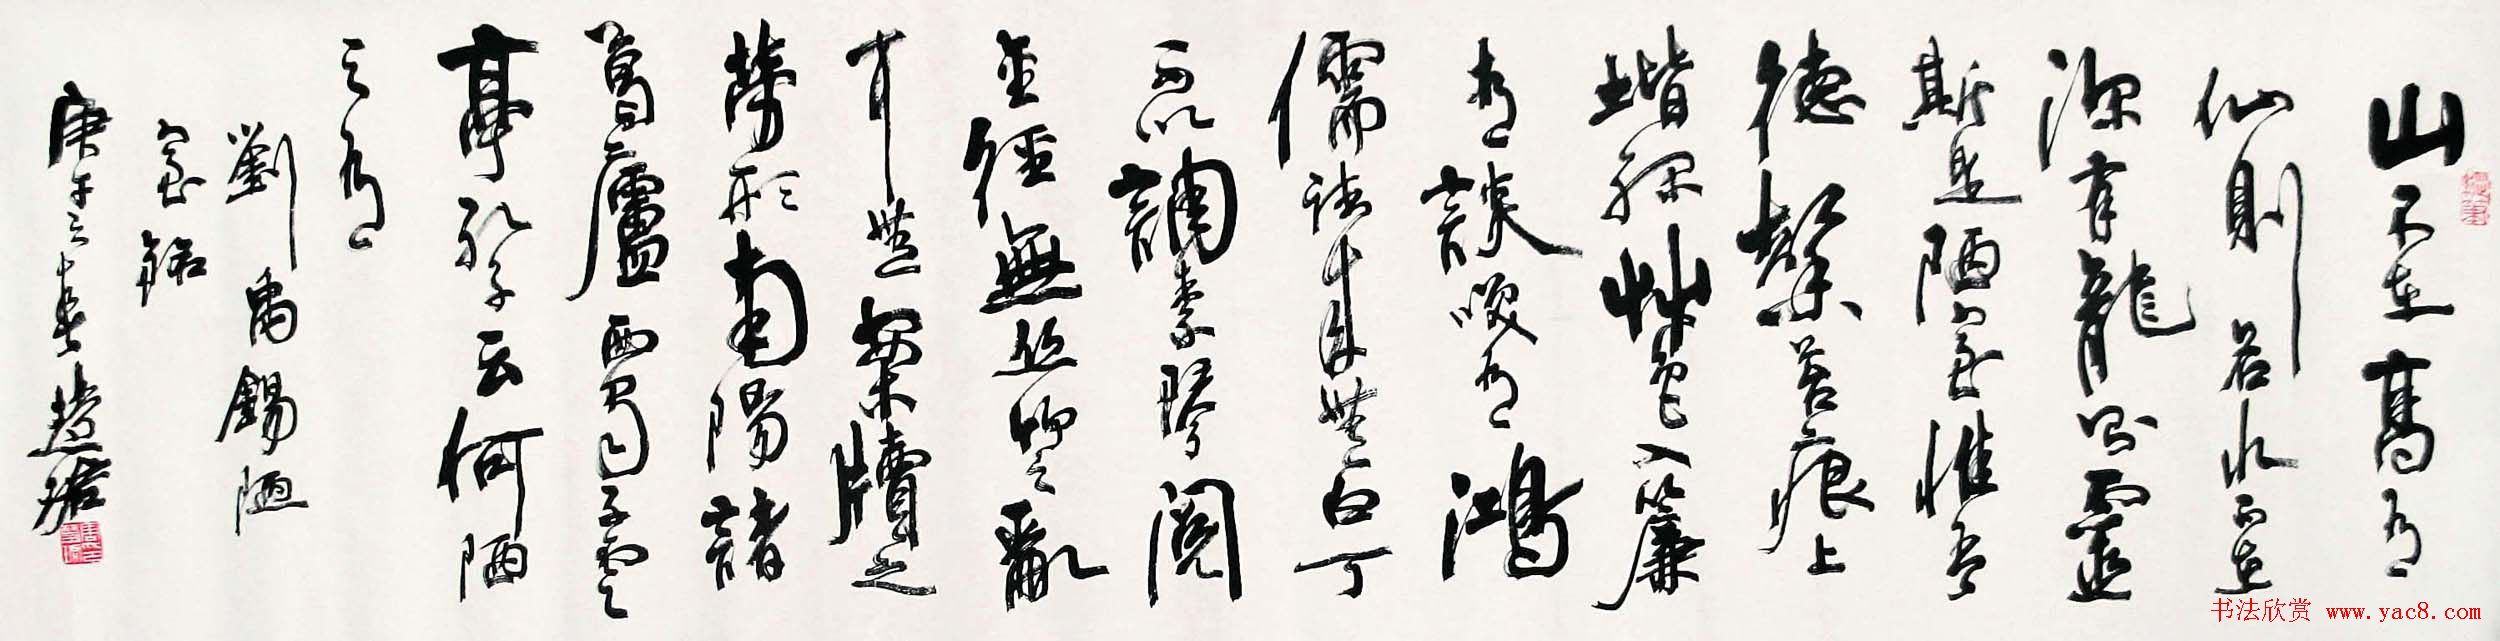 山不在高有
仙則名水不在
深有龍則靈
斯是陋室惟吾
德馨苔痕上
堦綠艸色入簾
青談笑有鴻
儒往來無白丁
可以調素琴閱
金經無絲竹之亂
耳無案牘之
勞形南陽諸
葛廬西蜀子雲
亭孔子云何陋
之有
劉禹錫陋
室銘
庚午春慧珺
书法欣赏 www.yac8.com